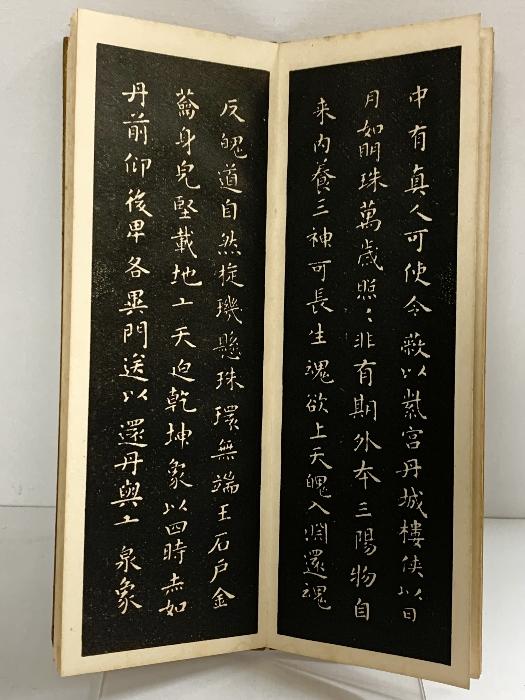 中有真人可使令蔽以紫宮丹城樓俠以日
月如明珠萬歲照〻非有期外本三陽物自
来内養三神可長生魂欲上天魄入淵還魂
反魄道自然㨔璣懸珠環無端玉石戶金
籥身皃堅載地二天迫乾坤象以四時赤如
丹前仰後卑各異門送以還丹與玄泉象